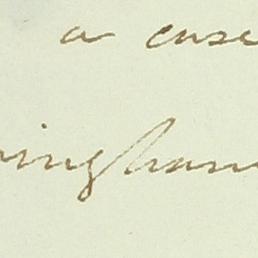 a case
ningham